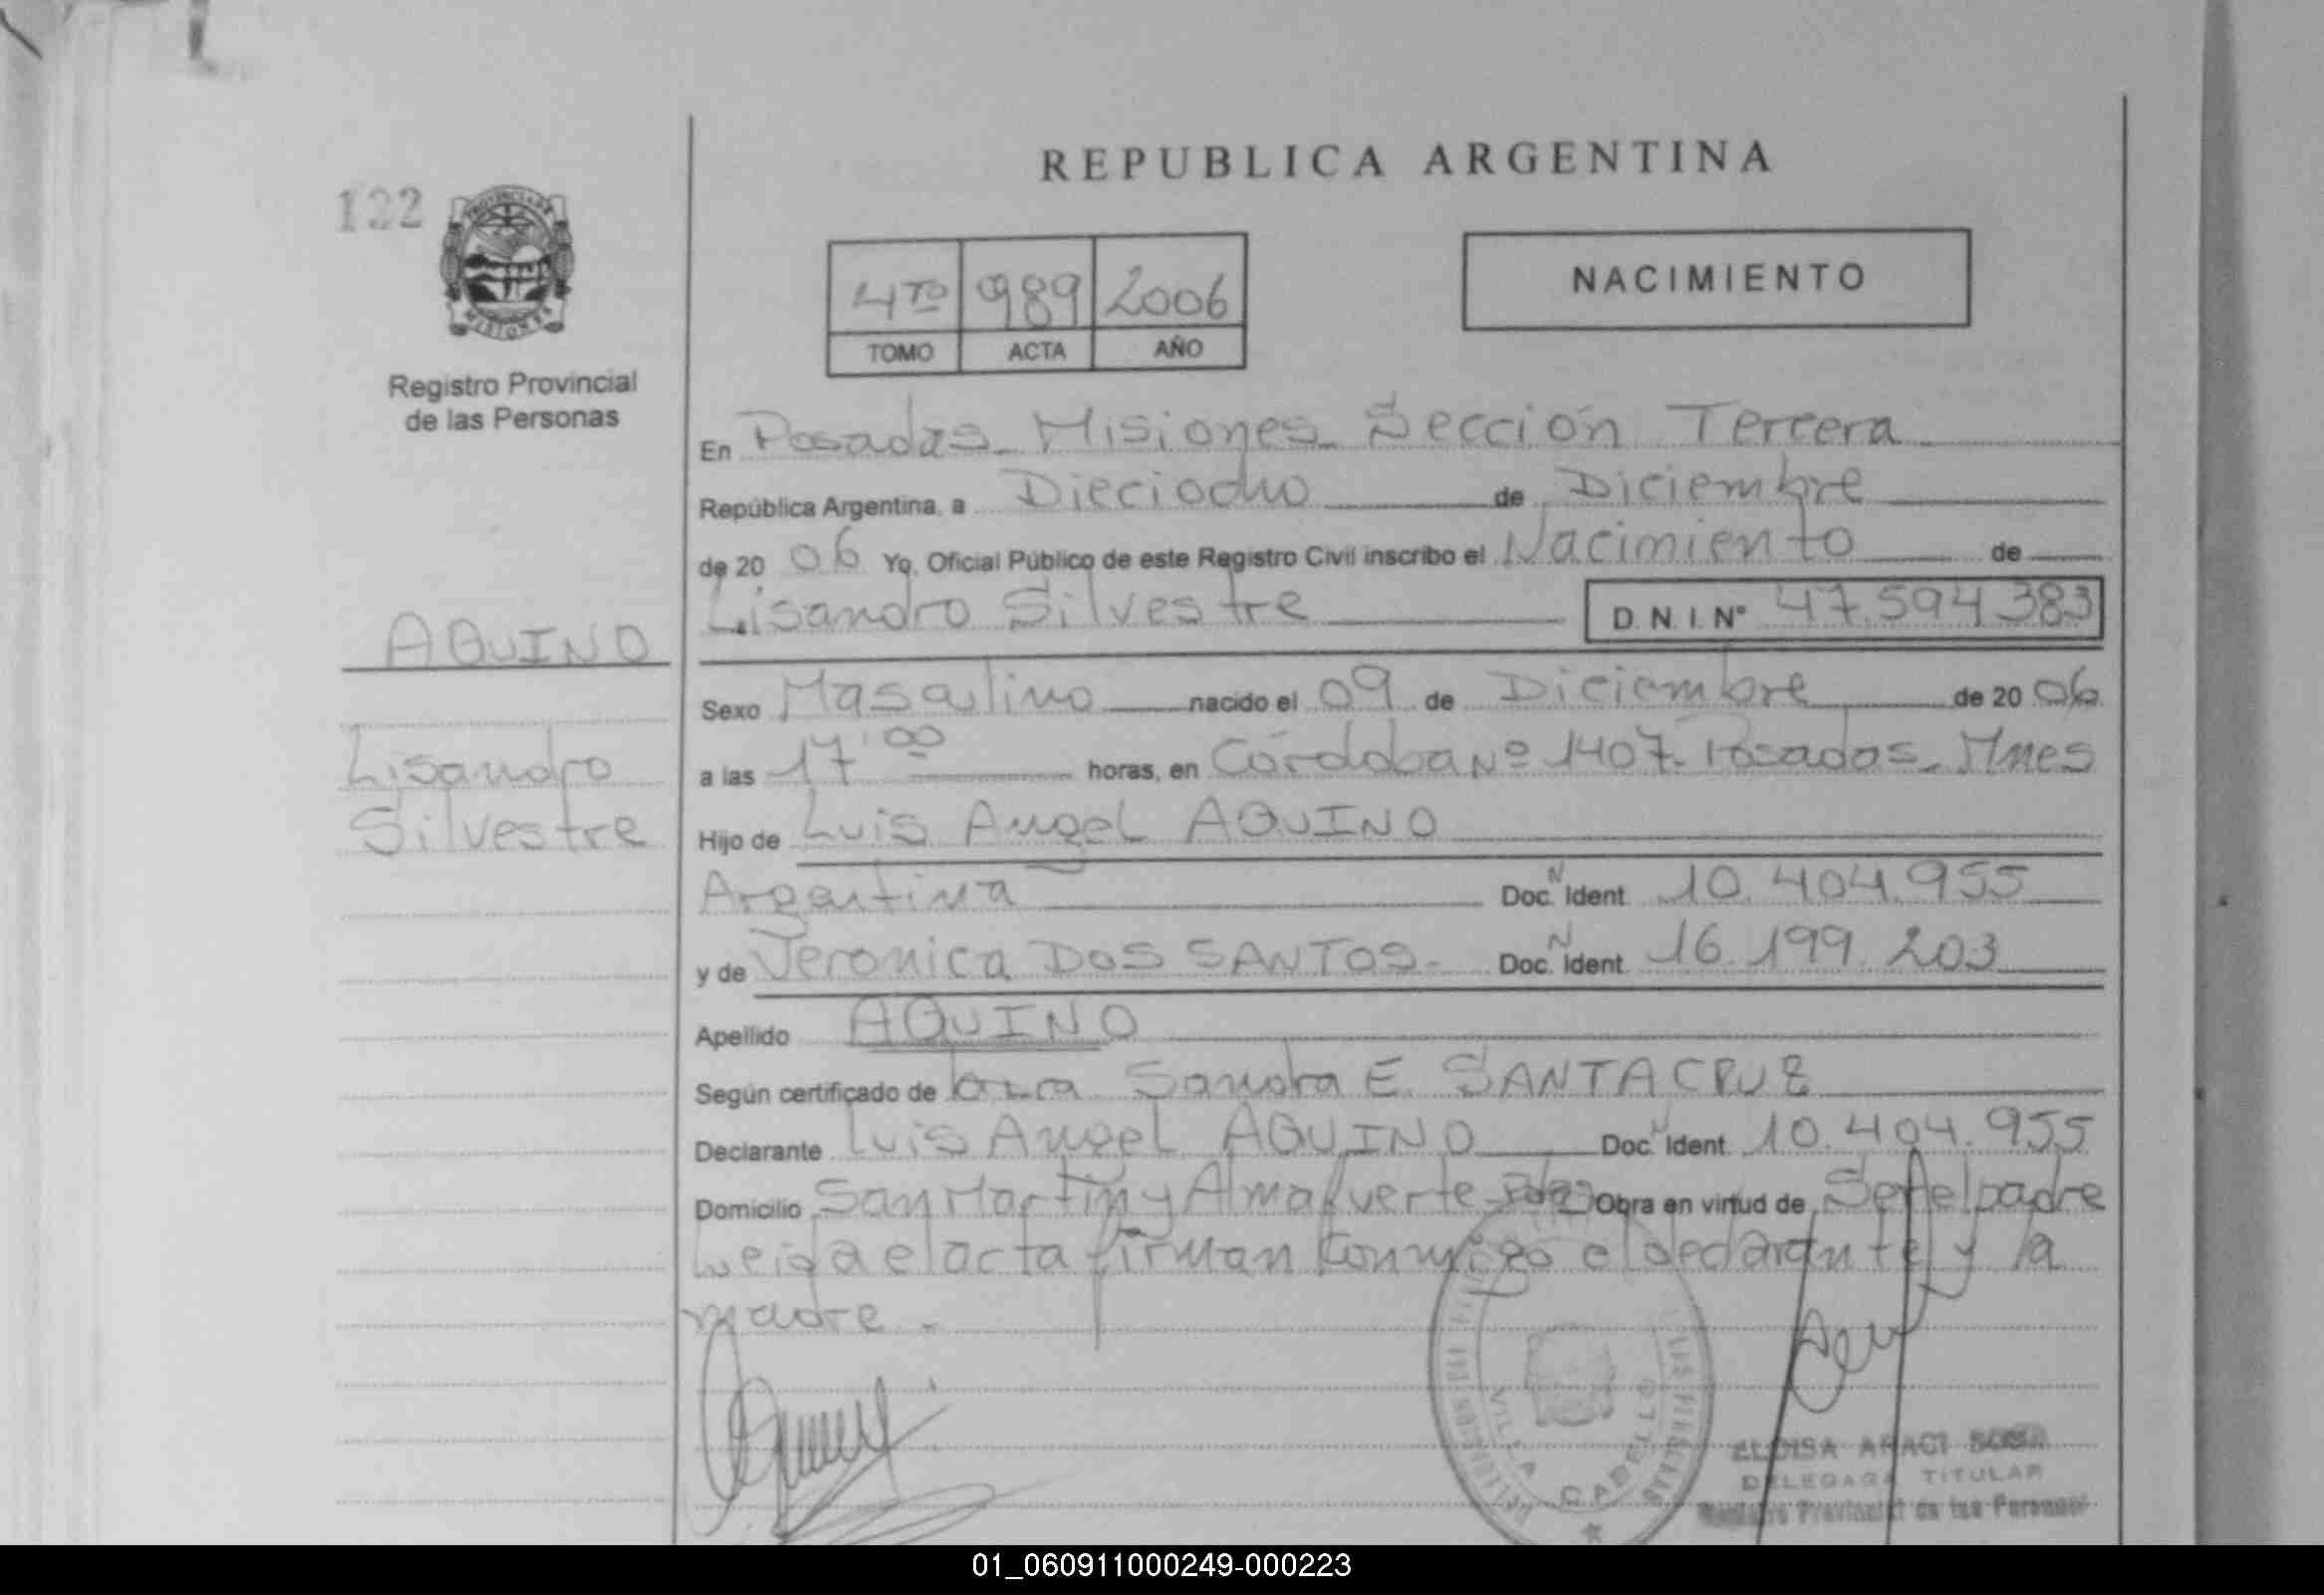 REPUBLICA ARGENTINA
122
PROVINCIA DE
MISIONES
Registro Provincial
de las Personas
4TO 989 2006
TOMO ACTA AÑO
NACIMIENTO
En Posadas - Misiones - Sección Tercera
República Argentina, a Dieciocho de Diciembre
de 20 06 Yo, Oficial Público de este Registro Civil inscribo el Nacimiento de
Lisandro Silvestre D.N.I.Nº 47.594.383
AQUINO
Lisandro
Silvestre
Sexo Masculino nacido el 09 de Diciembre de 20 06
a las 17'00 horas, en Córdoba Nº 1407 - Posadas - Mnes
Hijo de Luis Angel AQUINO
Argentina Doc. N Ident 10.404.955
y de Veronica DOS SANTOS - Doc. N Ident 16.199.203
Apellido AQUINO
Según certificado de Sandra E. SANTACRUZ
Declarante Luis Angel AQUINO Doc. N Ident 10.404.955
Domicilio San Martin y Almafuerte - Obra en virtud de Ser el padre
Leida el acta firman conmigo el declarante y la
madre -
VILLA CABELLO
ELOISA ARACI SOSA
DELEGADA TITULAR
Registro Provincial de las Personas
01_060911000249-000223